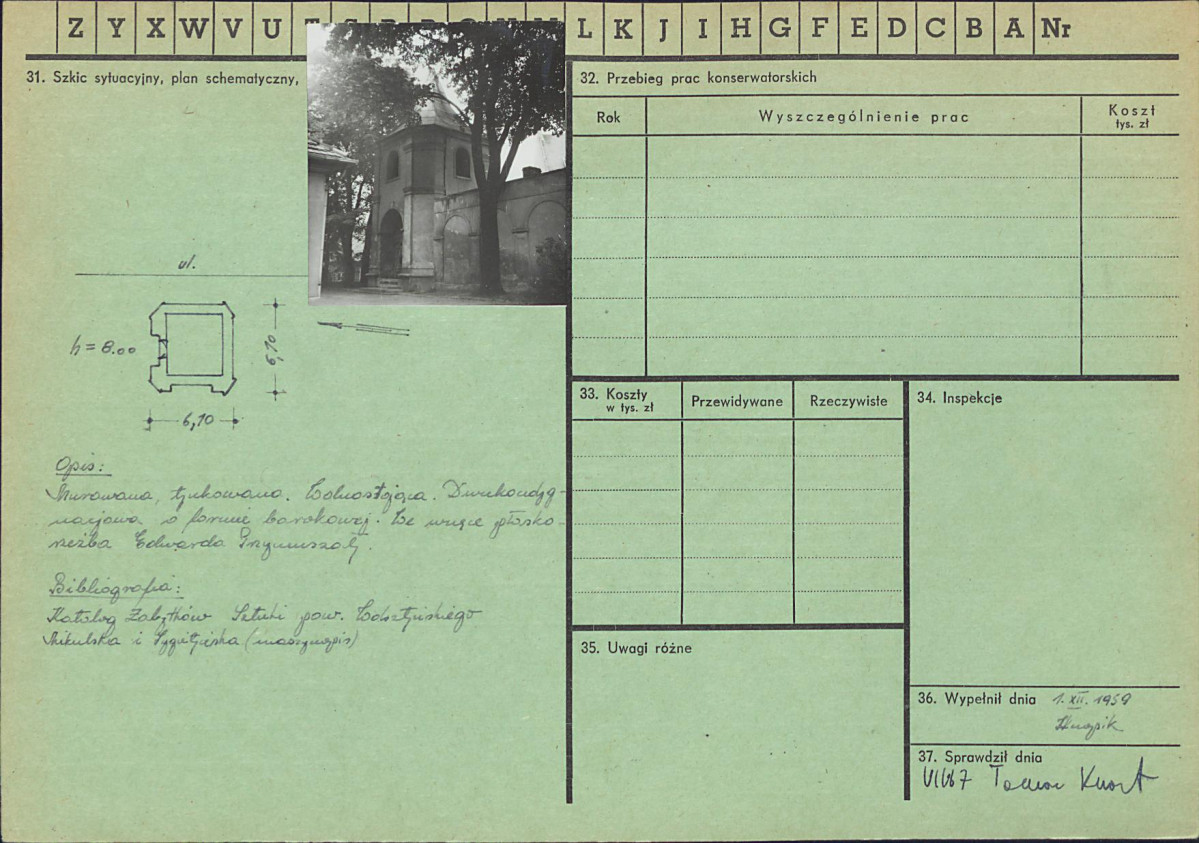 Z Y X W V U L K J I H G F E D C B A Nr
31. Szkic sytuacyjny, plan schematyczny,
ul.
h = 8.00
6,10
6,10
Opis:
Murowana, tynkowana. Wolnostojąca. Dwukondyg-
nacyjowa o formie barokowej. We wnęce płasko-
rzeźba Edwarda Przymuszały.
Bibliografia:
Katalog Zabytków Sztuki pow. Wolsztyńskiego
Mikulska i (maszynopis)
32. Przebieg prac konserwatorskich
Rok Wyszczególnienie prac Koszt
tys. zł
33. Koszty
w tys. zł
Przewidywane Rzeczywiste
34. Inspekcje
35. Uwagi różne
36. Wypełnił dnia 1. XII. 1959
37. Sprawdził dnia